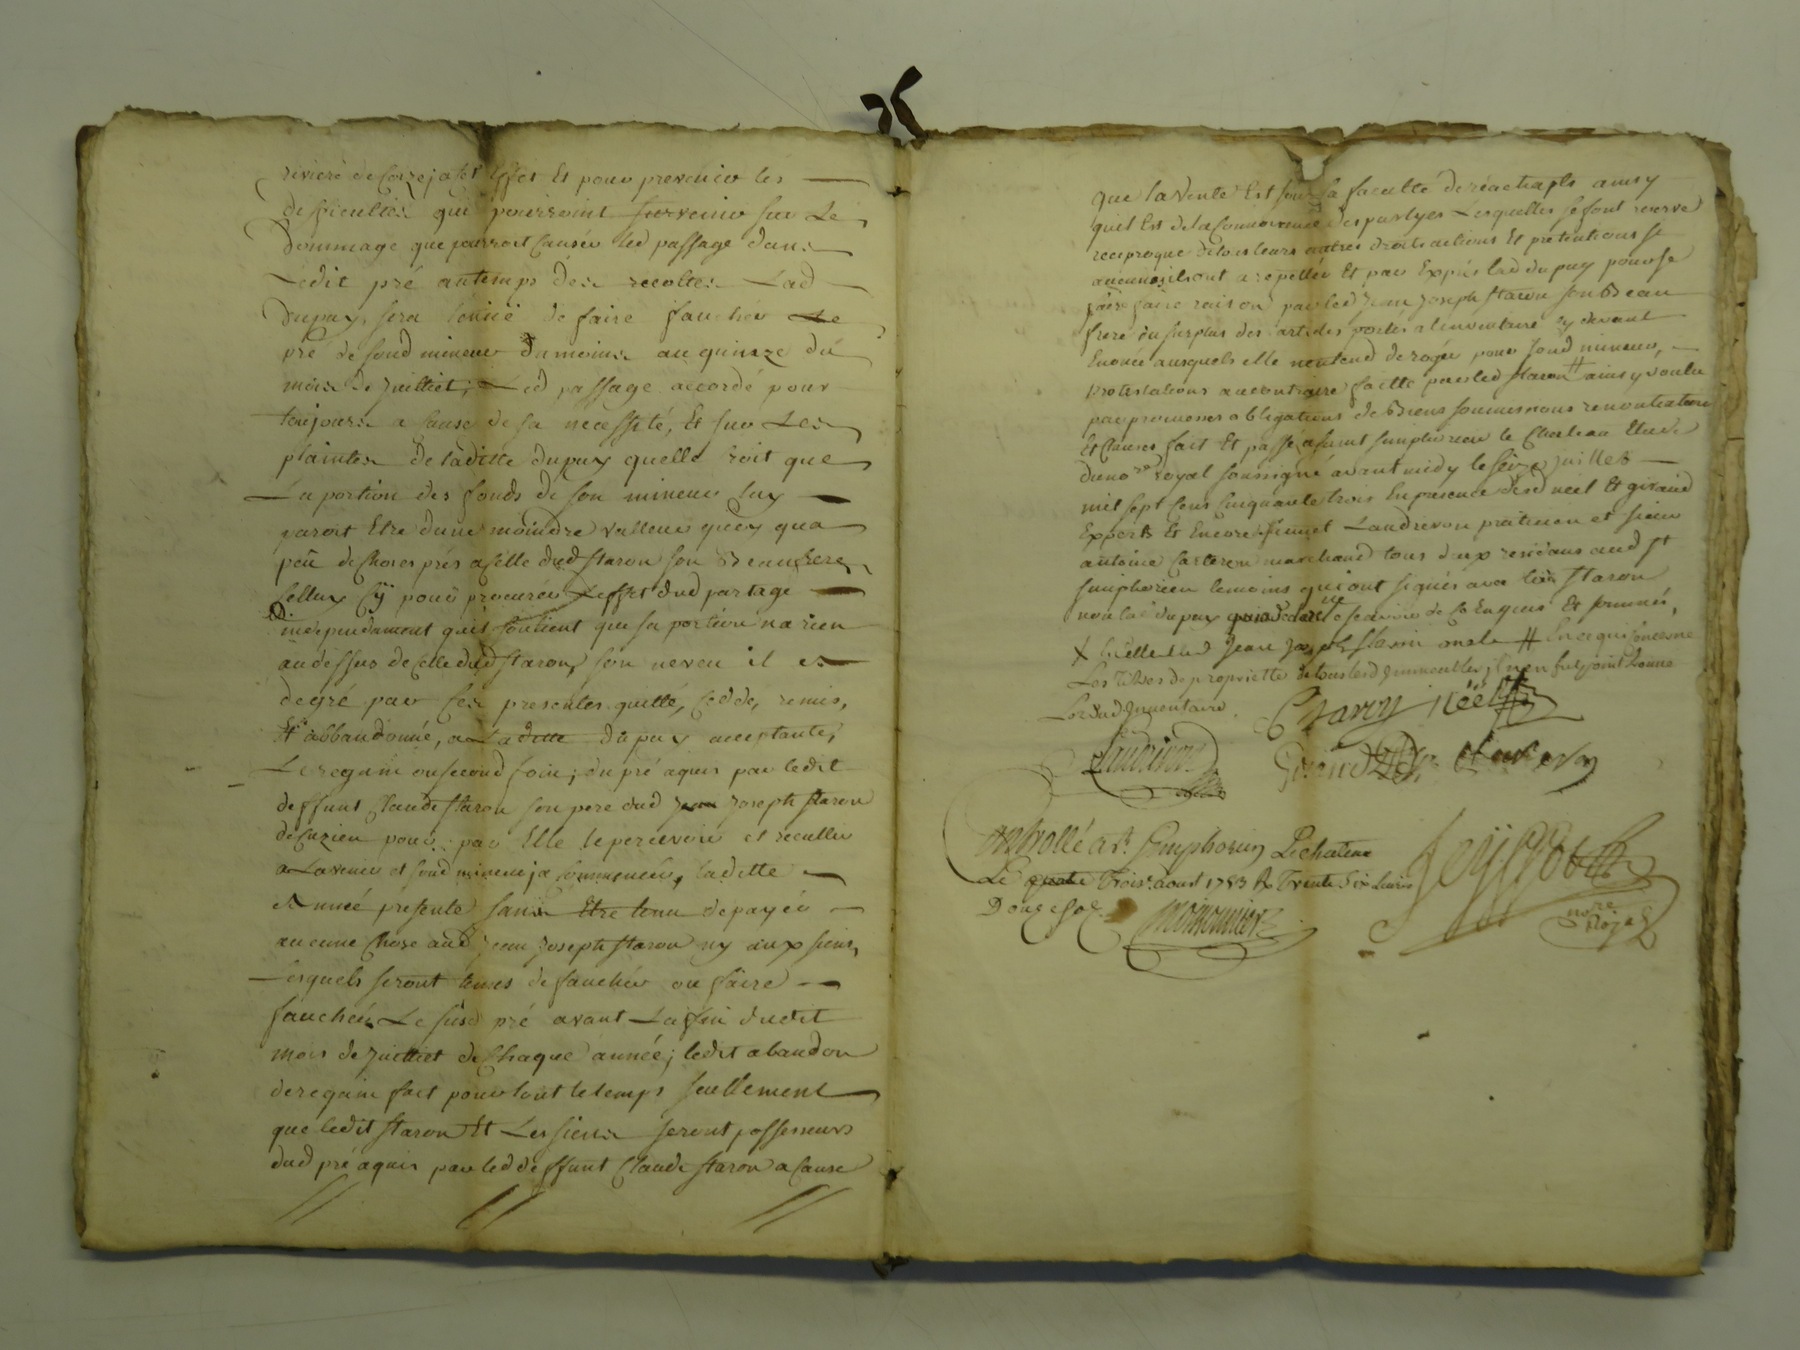 riviere de Cet effet Et pour prevenir les
difficultés qui pourroint survenir sur Le
Dommage que pourroit Causer led passage dans
Ledit pré au temps des recoltes Lad
Dupuy sera tenüe de faire faucher Le
pré de sond mineur du moins au quinze du
mois de Juilliet, Led passage accordé pour
toujours a Cause de sa necessité, Et sur Les
plaintes de laditte dupuy quelle soit que
La portion des fonds de son mineur luy
paroit Etre dune moindre valleur quoy qua
peu de Choses prés a Celle dud Staron son Beaufrere
Celluy Cÿ pour procurer Leffet dud partage
independament quil soutient que sa portion na rien
au dessus de Celle dud Staron son neveu il a
de gré par Ces presentes quitté, Cedde, remis,
Et abbandonné, a Laditte dupuy acceptante,
Le regain ou second foin, du pré aquis par ledit
deffunt Claude Staron son pere dud Jean Joseph Staron
de Cuzieu pour par Elle le percevoir et recullir
a Lavenir et sond mineur ja Commencer, laditte
année presente sans Etre tenu de payer
aucune Chose aud Jean Joseph Staron ny aux siens,
Lesquels seront tenus de faucher ou faire
faucher Le susd pré avant La fin dudit
mois de Juilliet de Chaque année; ledit abandon
de regain fait pour tout le temps seullement
que ledit Staron Et Les siens seront possesseurs
dud pré aquis par led deffunt Claude Staron a Cause
que la vente Est sous la faculté de réachapts ainsy
quil Est de la Connoissance des partyes Lesquelles se sont reservé
reciproque de tous leurs autres droits actions Et pretentions si
aucunes ils ont a repetter Et par Exprés lad dupuy pour se
faire faire raison par led Jean Joseph Staron son Beau
frere du surplus des articles portés a linventaire cy devant
Enoncé ausquels elle nentend deroger pour sond mineur,
protestations au contraire faitte par led Staron # ainsy voulu
par promesses obligations de Biens soumissions renontiations
Et Clauses fait Et passé a saint simphorien le Chateau Etude
du nore royal soussigné avant midy le seize juillet
mil sept Cens Cinquante trois En presence desd neel Et giraud
Experts Et Encore Landrivon praticien et sieur
antoine marchand tous deux residans aud st
simphorien temoins qui ont signés avec led Staron
non lad dupuy qui a declaré ne scavoir de Ce Enquis Et sommés,
X Jean Joseph Staron # En ce qui Concerne
Les titres de proprietté de tous lesd Jmmeubles
Lors dud Jnventaire.
Staron néel
Landrivon Giraud
Controllé a St. Simphorien Lechateau
Le quatre Trois aoust 1753 Rx Trente six Livres
Douze sols.
nore
Royal